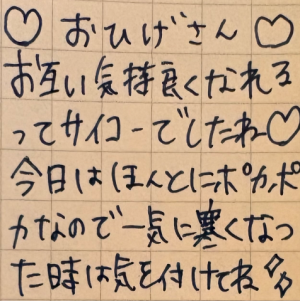 ♡ おひげさん ♡
お互い気持良くなれる
ってサイコーでしたねー♡
今日はほんとにポカポ
カなので一気に寒くなっ
た時は気を付けてね✧✧